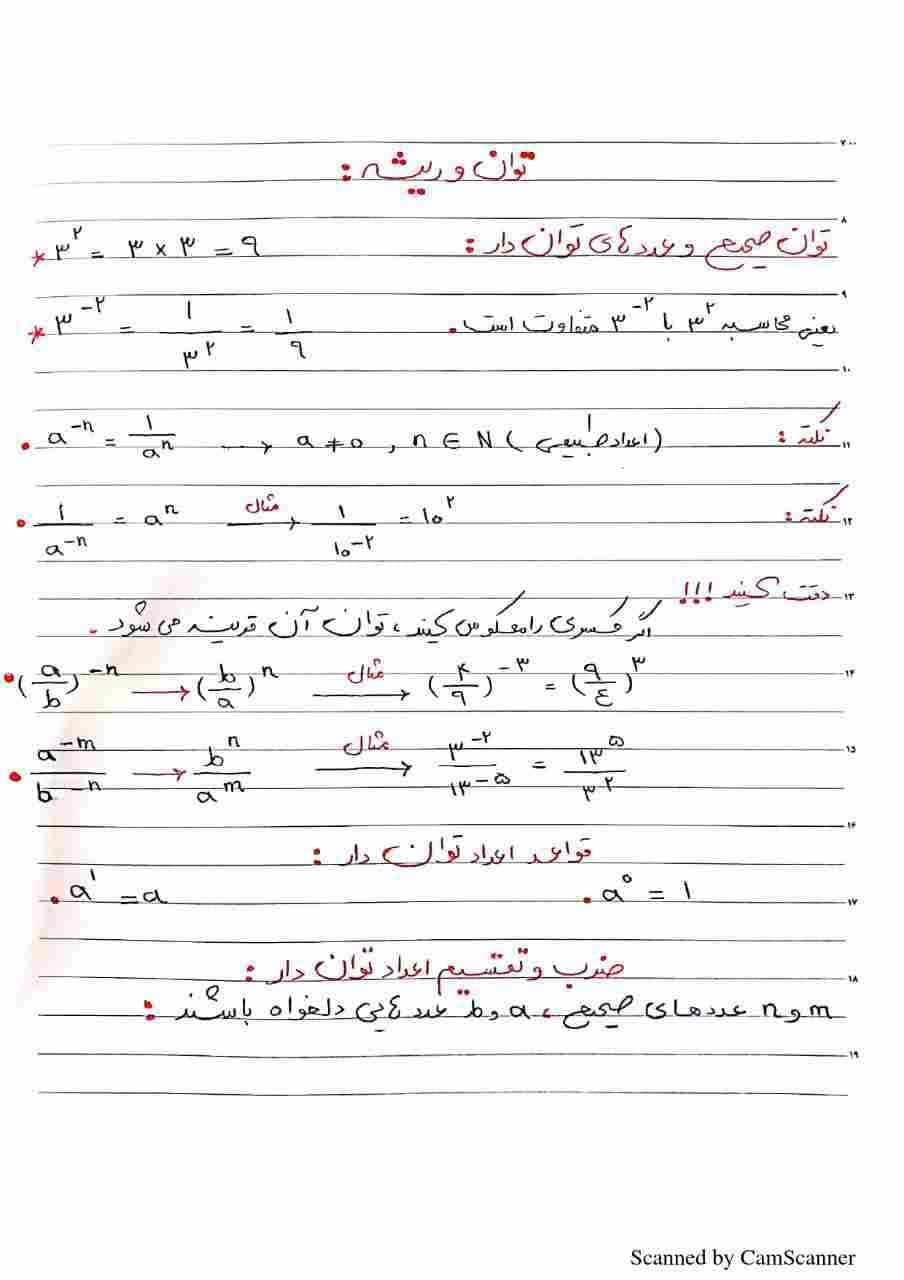 ۷:۰۰
توان و ریشه :
۸
توان صحیح و عددهای توان دار :
* ۳^۲ = ۳ × ۳ = ۹
۹
یعنی محاسبه ۳^۲ با ۳^-۲ متفاوت است.
* ۳^-۲ = ۱/۳^۲ = ۱/۹
۱۰
نکته :
• a^-n = ۱/a^n → a ≠ ۰ , n ∈ N (اعداد طبیعی)
۱۱
نکته :
• ۱/a^-n = a^n مثال → ۱/۱۰^-۲ = ۱۰^۲
۱۲
دقت کنید !!!
۱۳
اگر کسری را معکوس کنید، توان آن قرینه می شود.
• (a/b)^-n → (b/a)^n مثال → (۴/۹)^-۳ = (۹/۴)^۳
۱۴
• a^-m/b^-n → b^n/a^m مثال → ۳^-۲/۱۳^-۵ = ۱۳^۵/۳^۲
۱۵
۱۶
قواعد اعداد توان دار :
• a^۰ = ۱
• a^۱ = a
۱۷
ضرب و تقسیم اعداد توان دار :
۱۸
m و n عددهای صحیح ، a و b عددهایی دلخواه باشند :
۱۹
Scanned by CamScanner